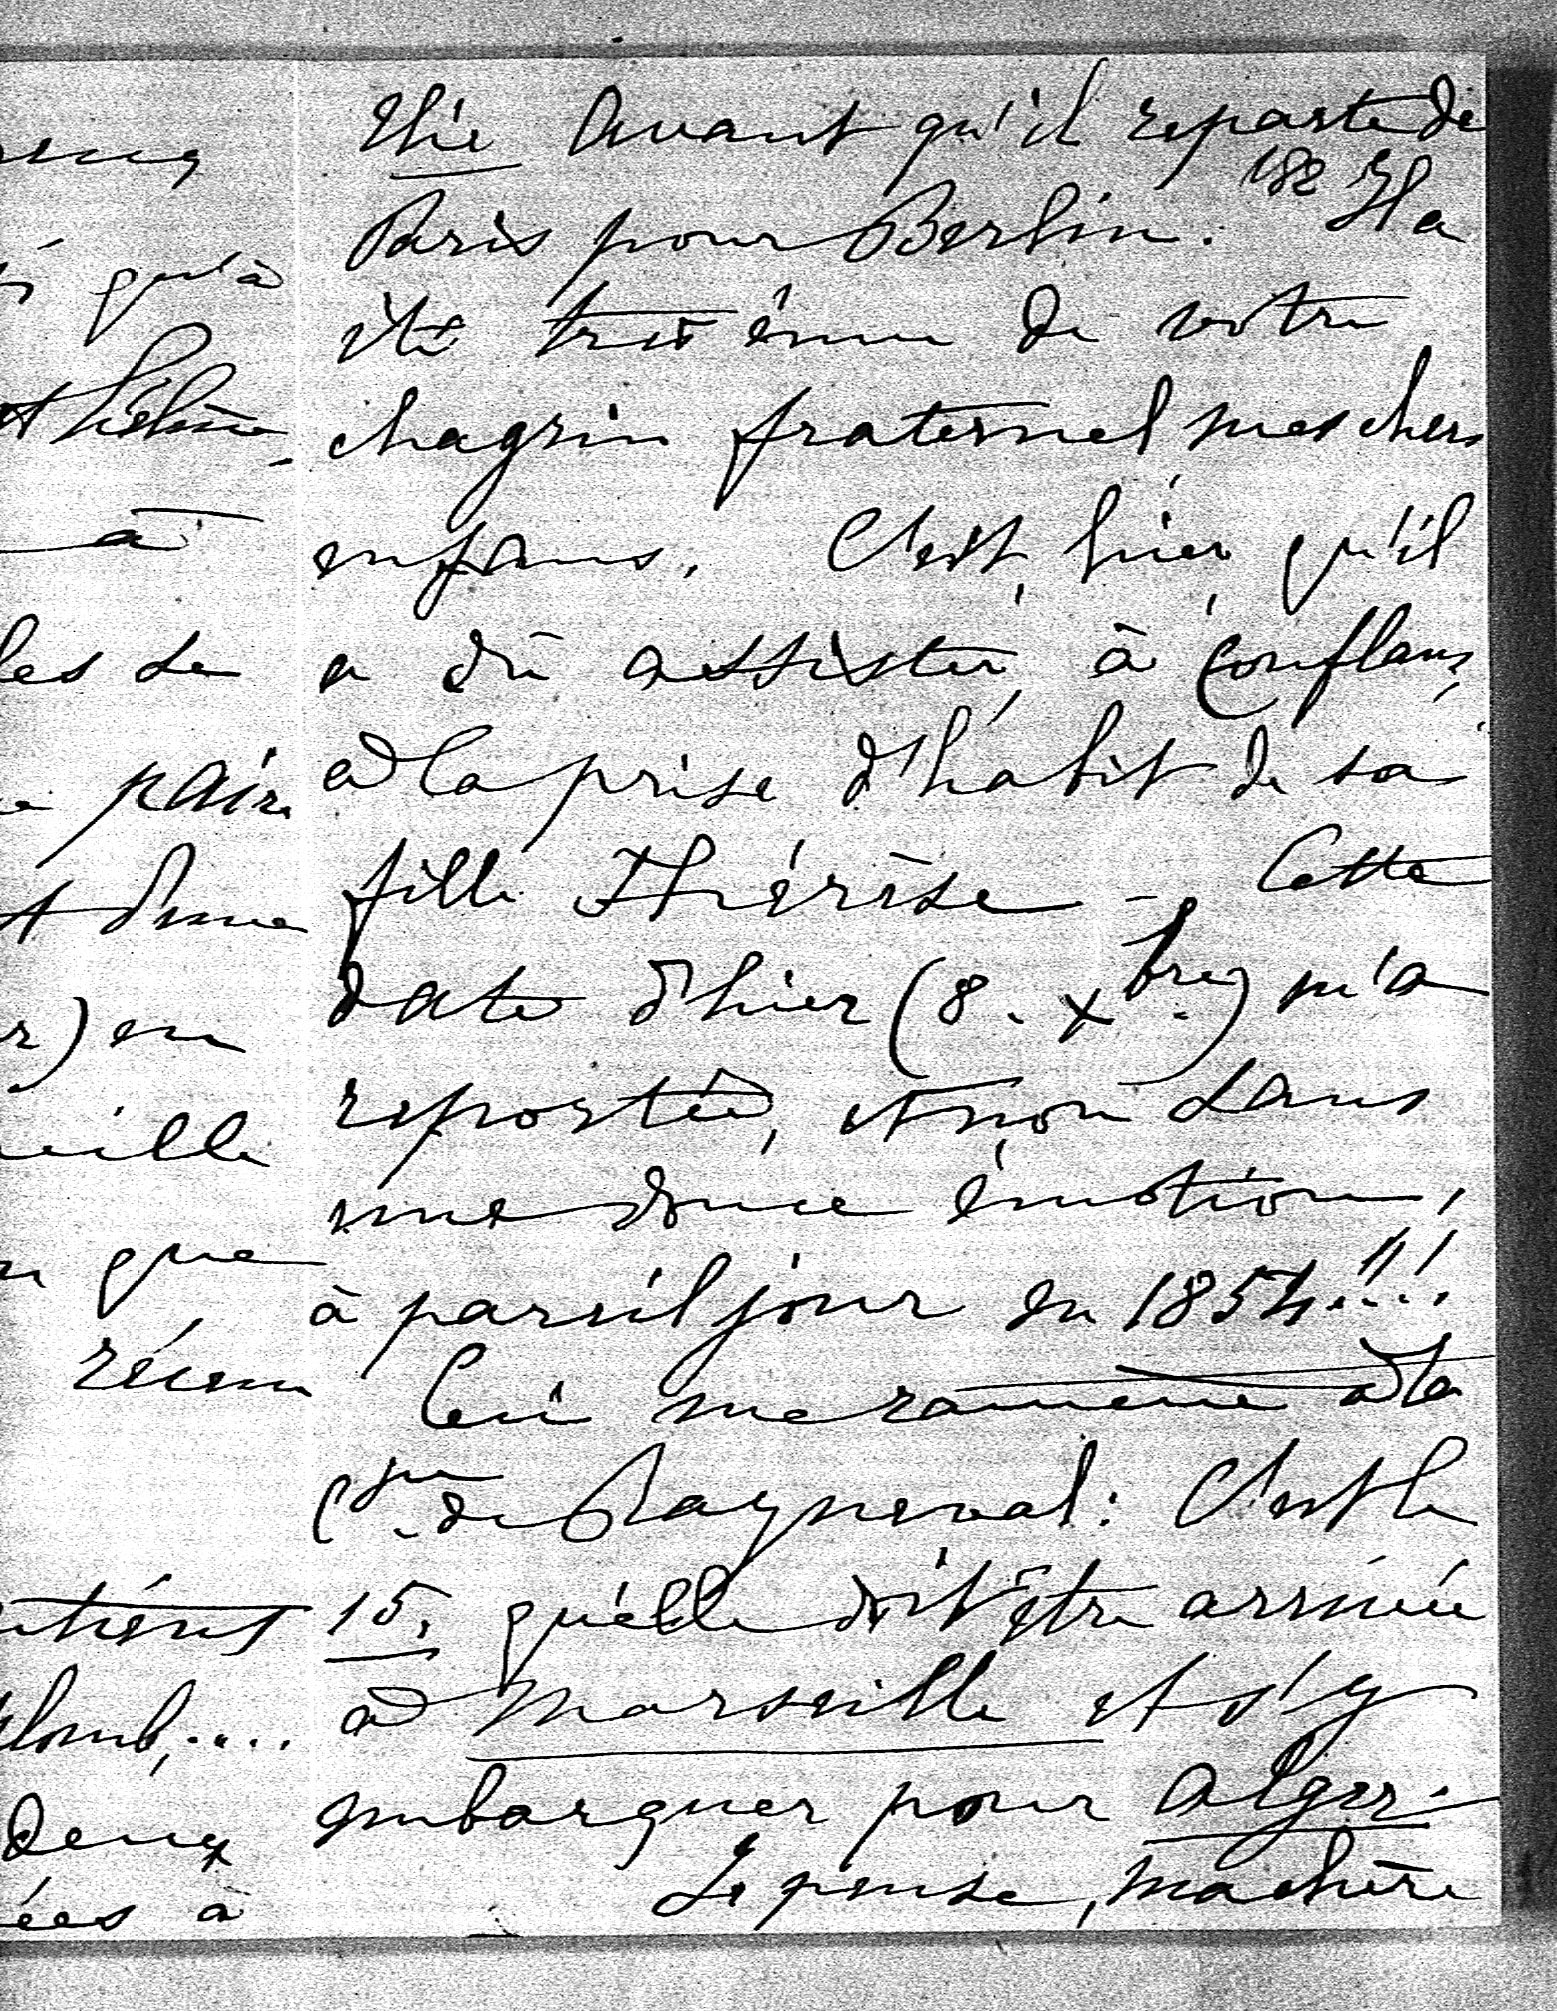 thie avant qu'il reparte de
182
Paris pour Berlin. Il a
été très ému de votre
chagrin fraternel mes chers
enfans. C'est hier qu'il
a dû assister, à Conflans,
à la prise d'habit de sa
fille Thérèse – Cette
date d'hier (8. Xbre) m'a
reportée, et non sans
une douce émotion,
à pareil jour en 1854!!!
Ceci me ramène à la
Ctesse de Rayneval: C'est le
15. qu'elle doit être arrivée
à Marseille et s'y
embarquer pour Alger.
Je pense, ma chère
qu'à
à
les se
paire
d'une
en
que
deux
ées à